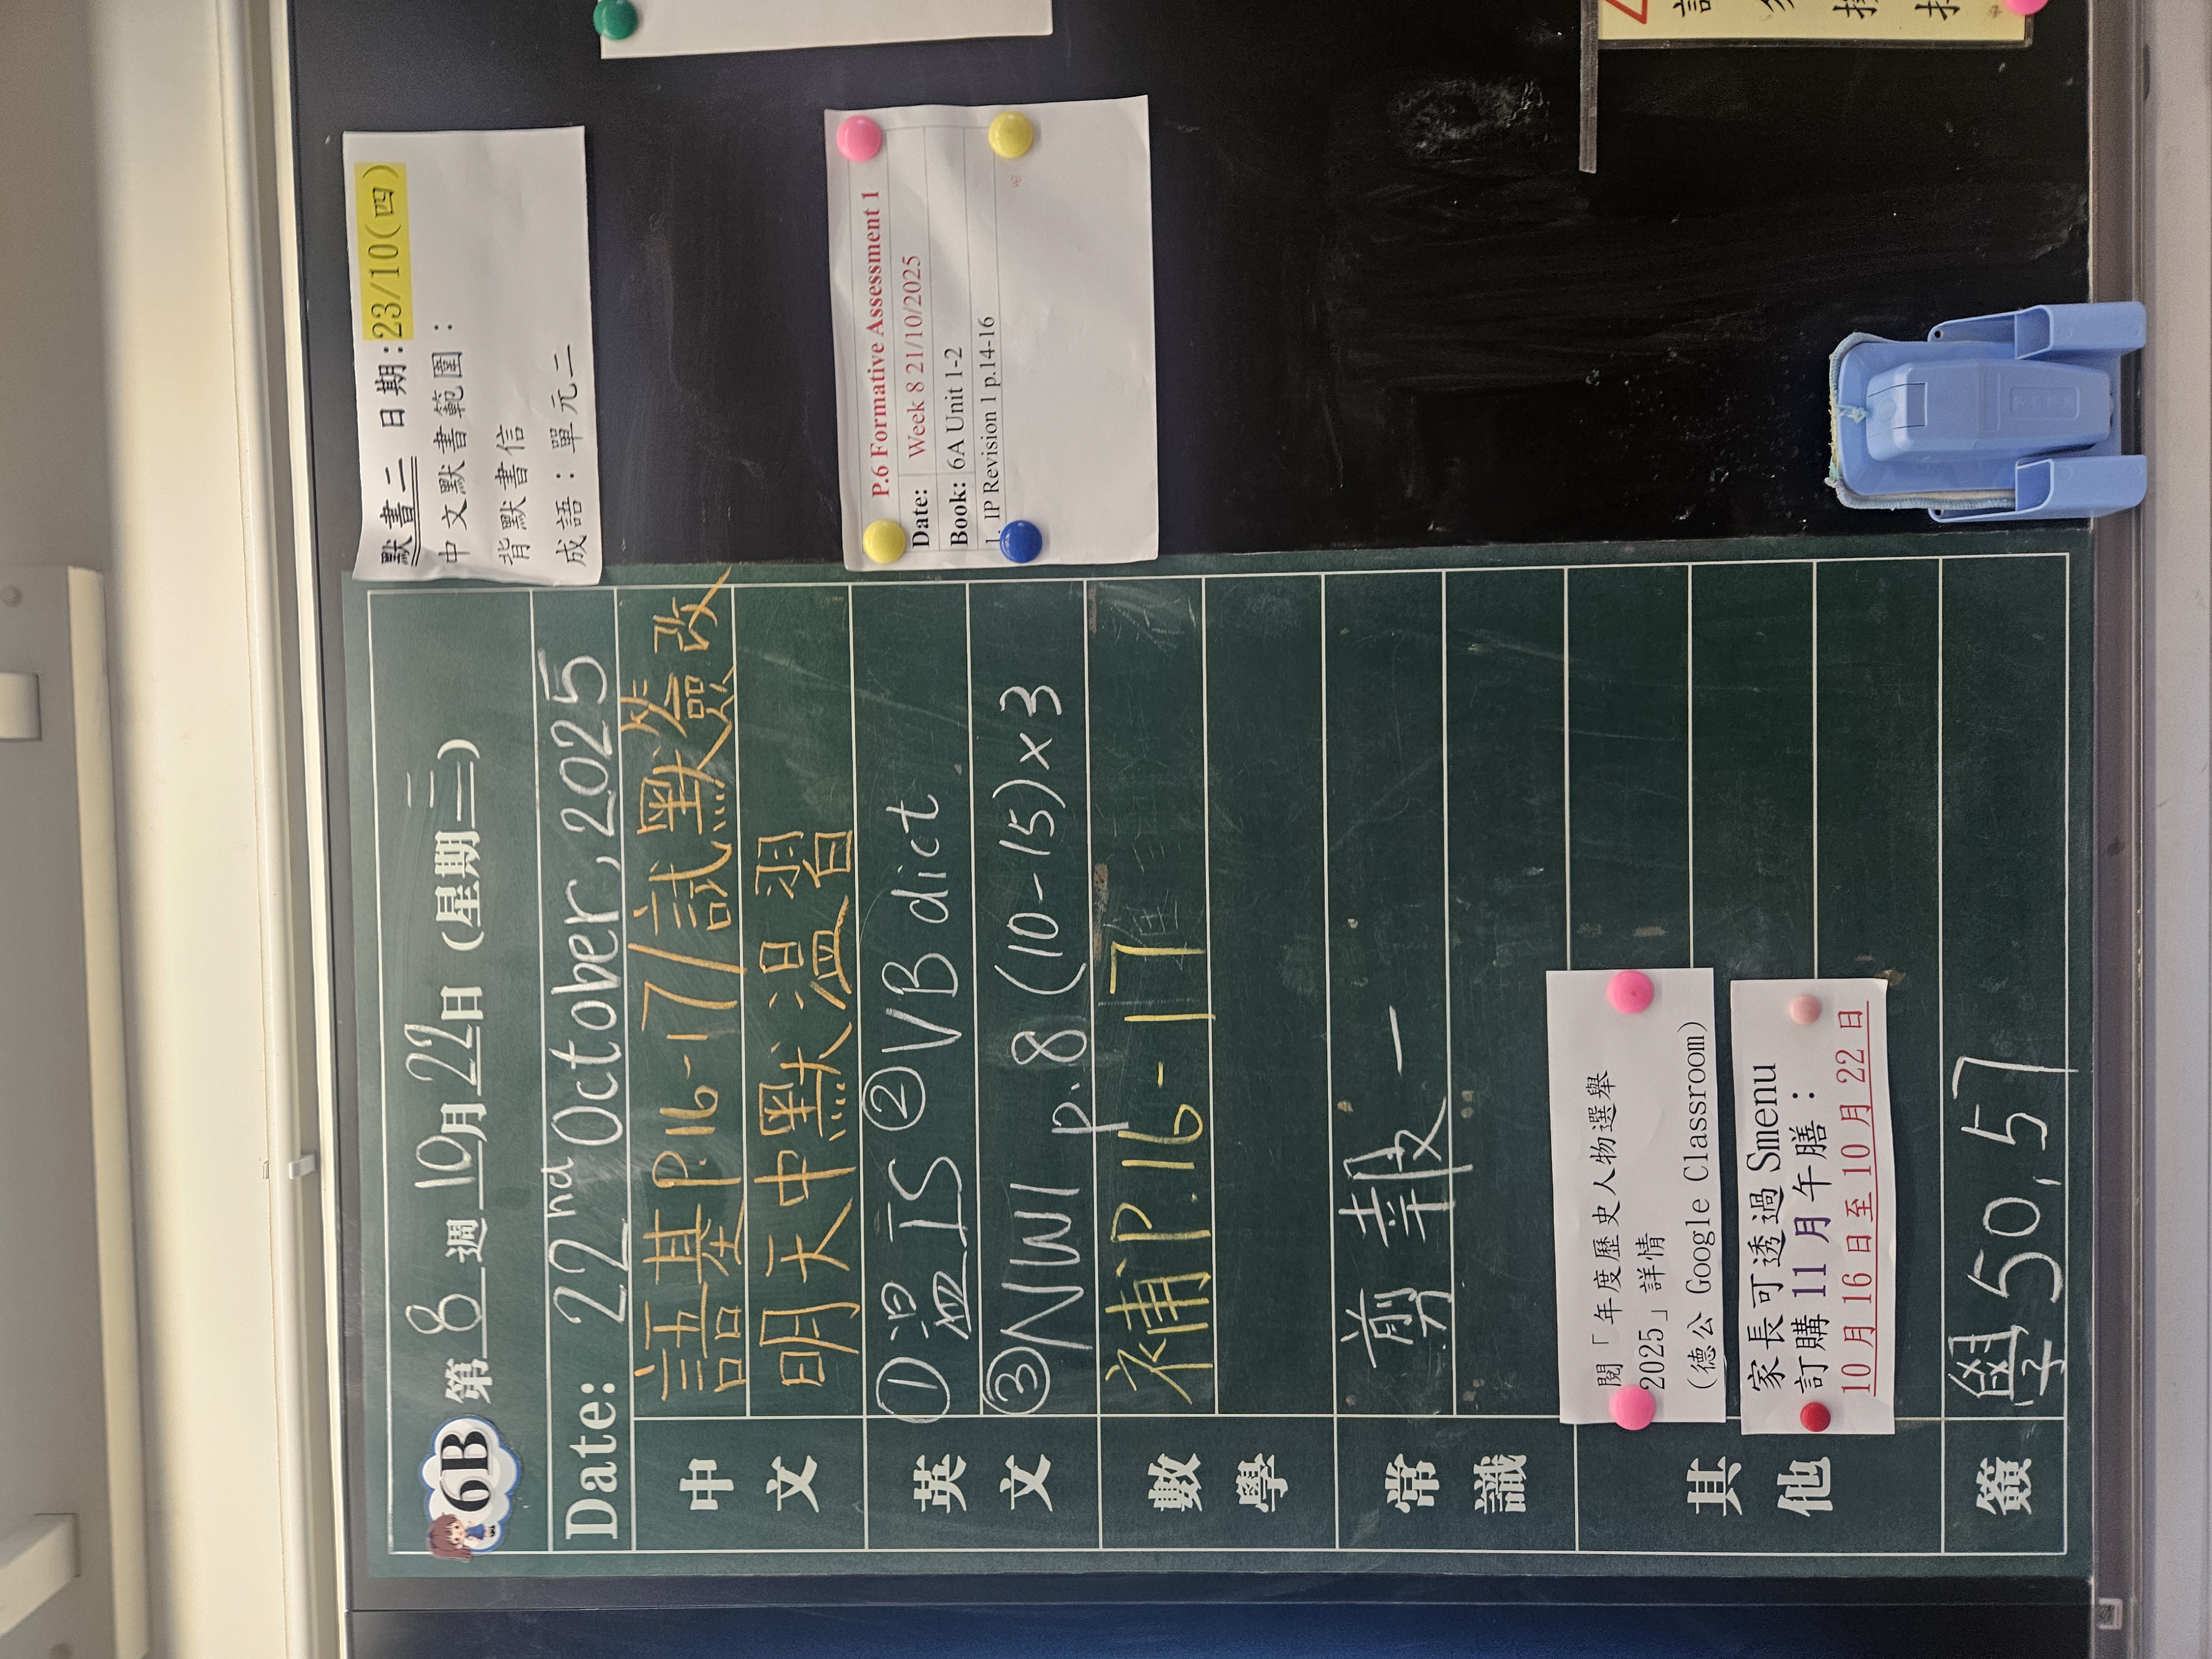 6B 第 8 週 10月22日 (星期三)
Date: 22nd October, 2025
中文
語基P.16-17/試默簽改
明天中默溫習
英文
①溫IS ②VB dict
③NW1 p.8 (10-15)×3
數學
補P.16-17
常識
剪報一
其他
閱「年度歷史人物選舉
2025」詳情
(德公 Google Classroom)
家長可透過 Smenu
訂購 11 月午膳：
10 月 16 日至 10 月 22 日
簽
學50, 57
默書二 日期：23/10(四)
中文默書範圍：
背默書信
成語：單元二
P.6 Formative Assessment 1
Date: Week 8 21/10/2025
Book: 6A Unit 1-2
1. IP Revision 1 p.14-16